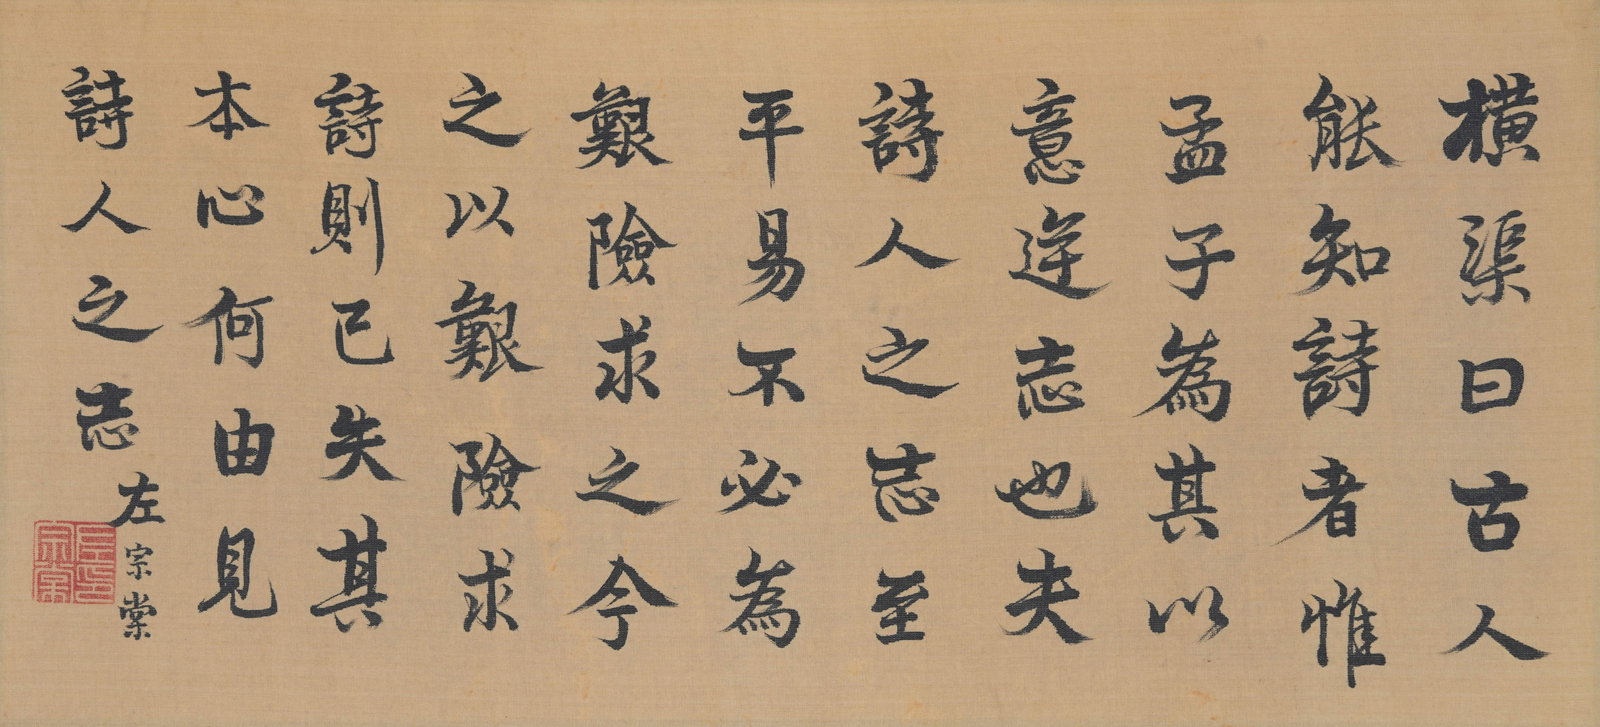 橫渠曰古人
能知詩者惟
孟子為其以
意逆志也夫
詩人之志至
平易不必為
艱險求之今
之以艱險求
詩則已失其
本心何由見
詩人之志
左宗棠